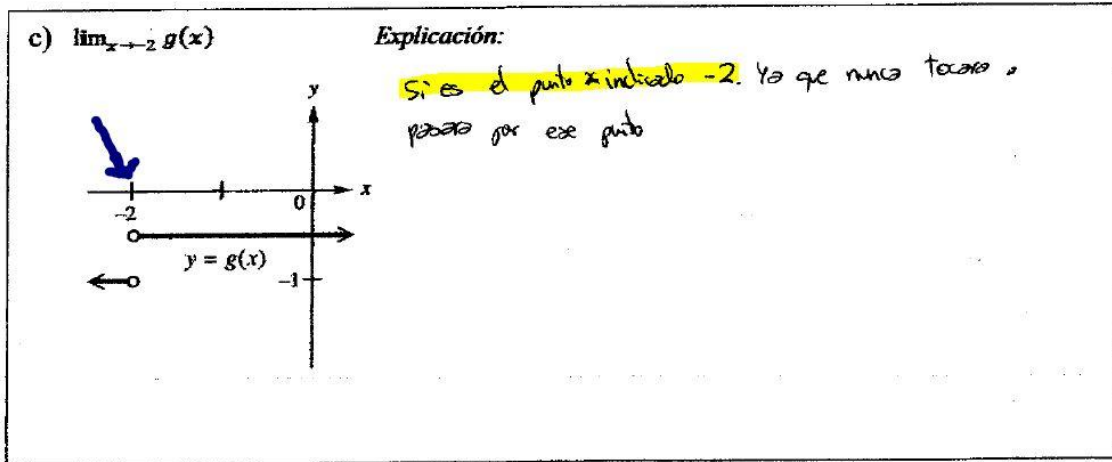 c) lim x→−2 g(x)
Explicación:
Si es el punto x indicado -2. Ya que nunca tocara o
pasara por ese punto
y
x
0
-2
y = g(x)
-1